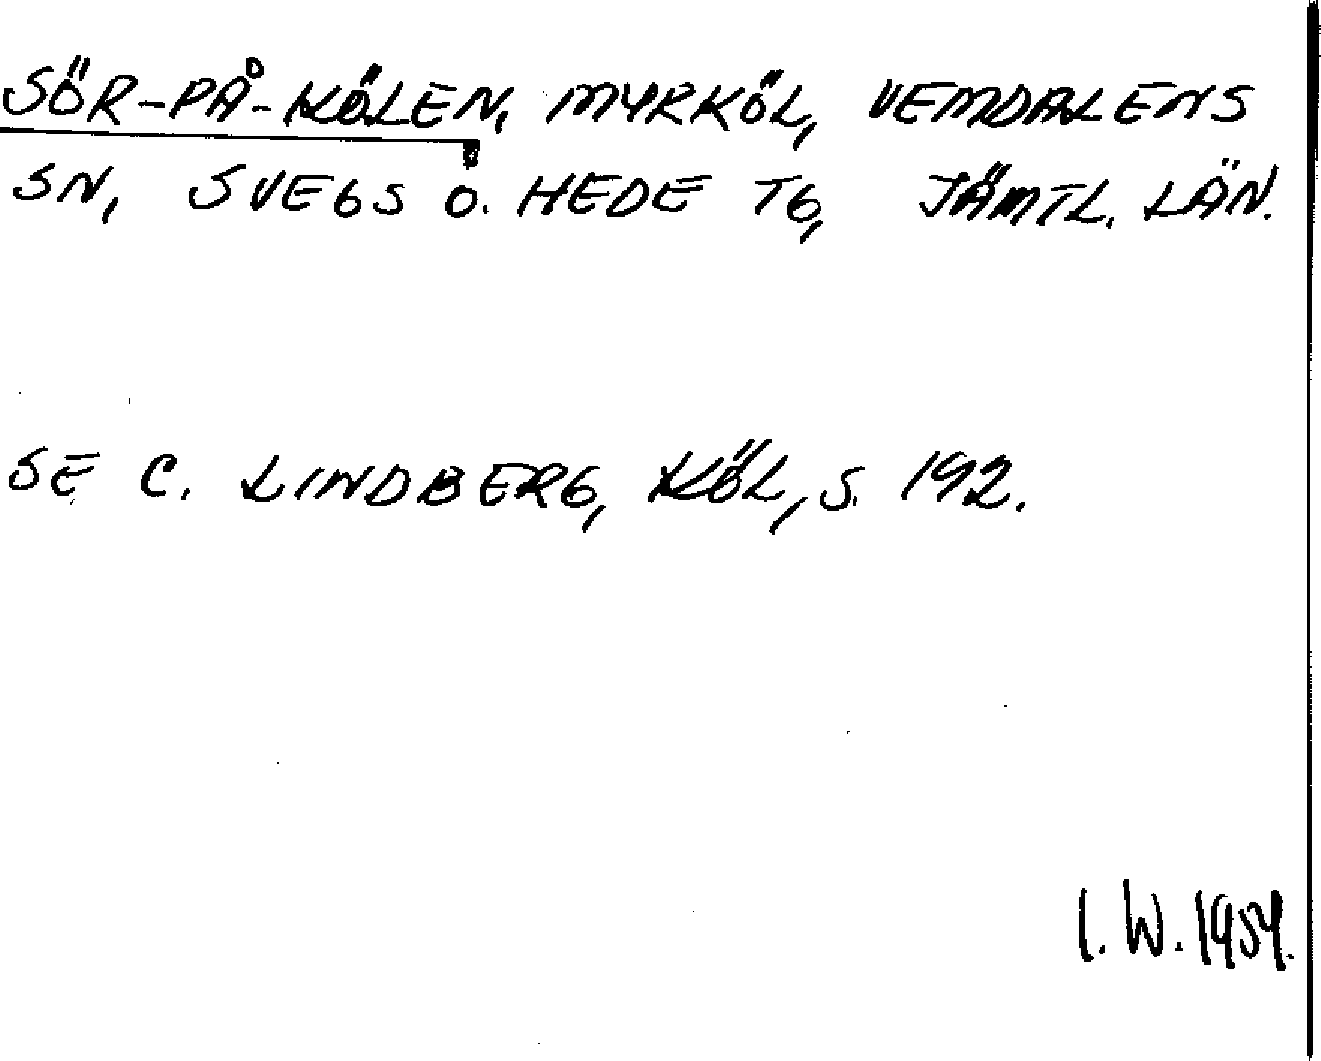 SÖR-PÅ-KÖLEN, MYRKÖL, VEMDALENS
SN, SVEGS O. HEDE TG, JÄMTL. LÄN.
SE C. LINDBERG, KÖL, S. 192.
I. W. 1954.